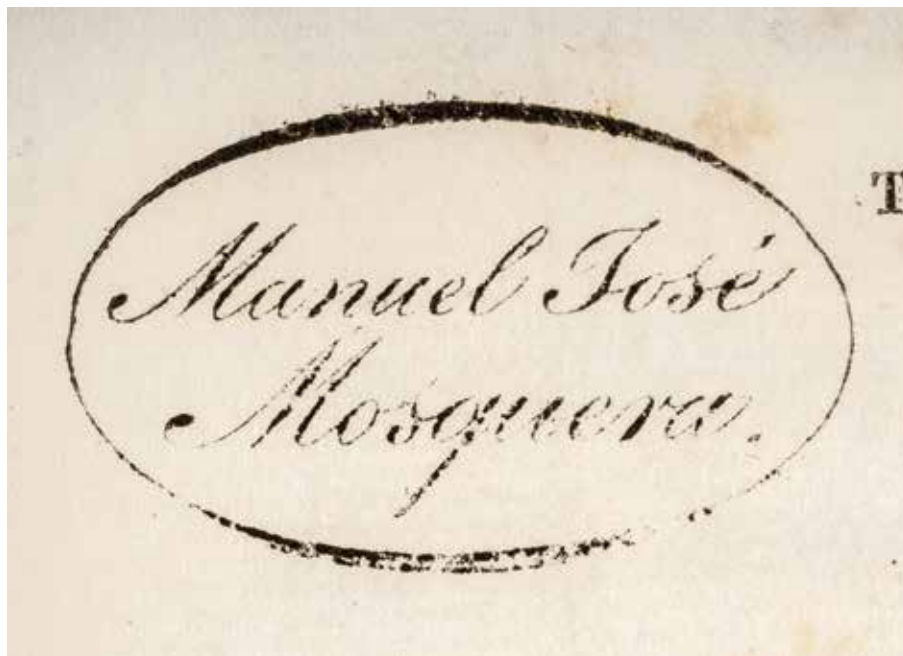 Manuel José
Mosquera.
T